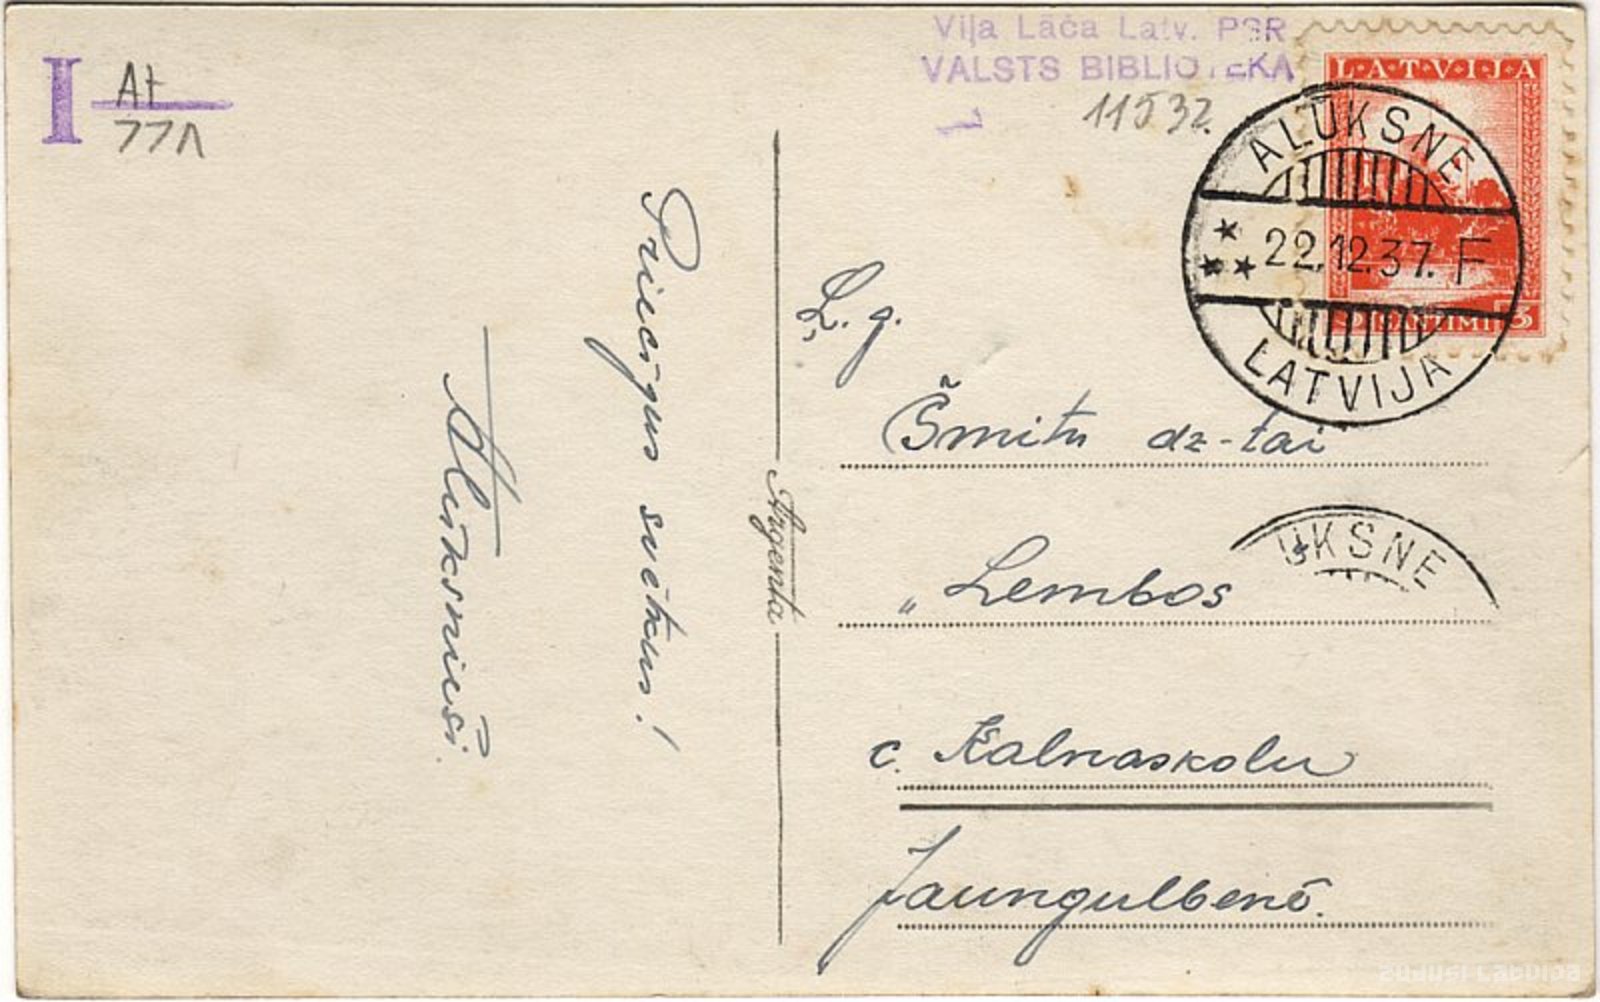 I At
77A
Viļa Lāča Latv. PSR
VALSTS BIBLIOTEKA
11532.
LATVIJA
3 SANTIMI 3
ALŪKSNE
22.12.37. F
LATVIJA
Priecīgus svētkus!
Alūksnieši.
Argenta
Ļ. g.
Šmitu dz-tai
UKSNE
„Lembos
c. Kalnaskolu
Jaungulbenē.
zudusi Latvija